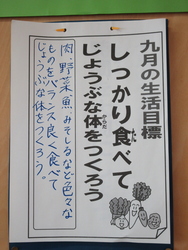 九月の生活目標
しっかり食べて
じょうぶな体をつくろう
からだ
肉、野菜、魚、みそしるなど色々な
ものをバランス良く食べて
じょうぶな体をつくろう。